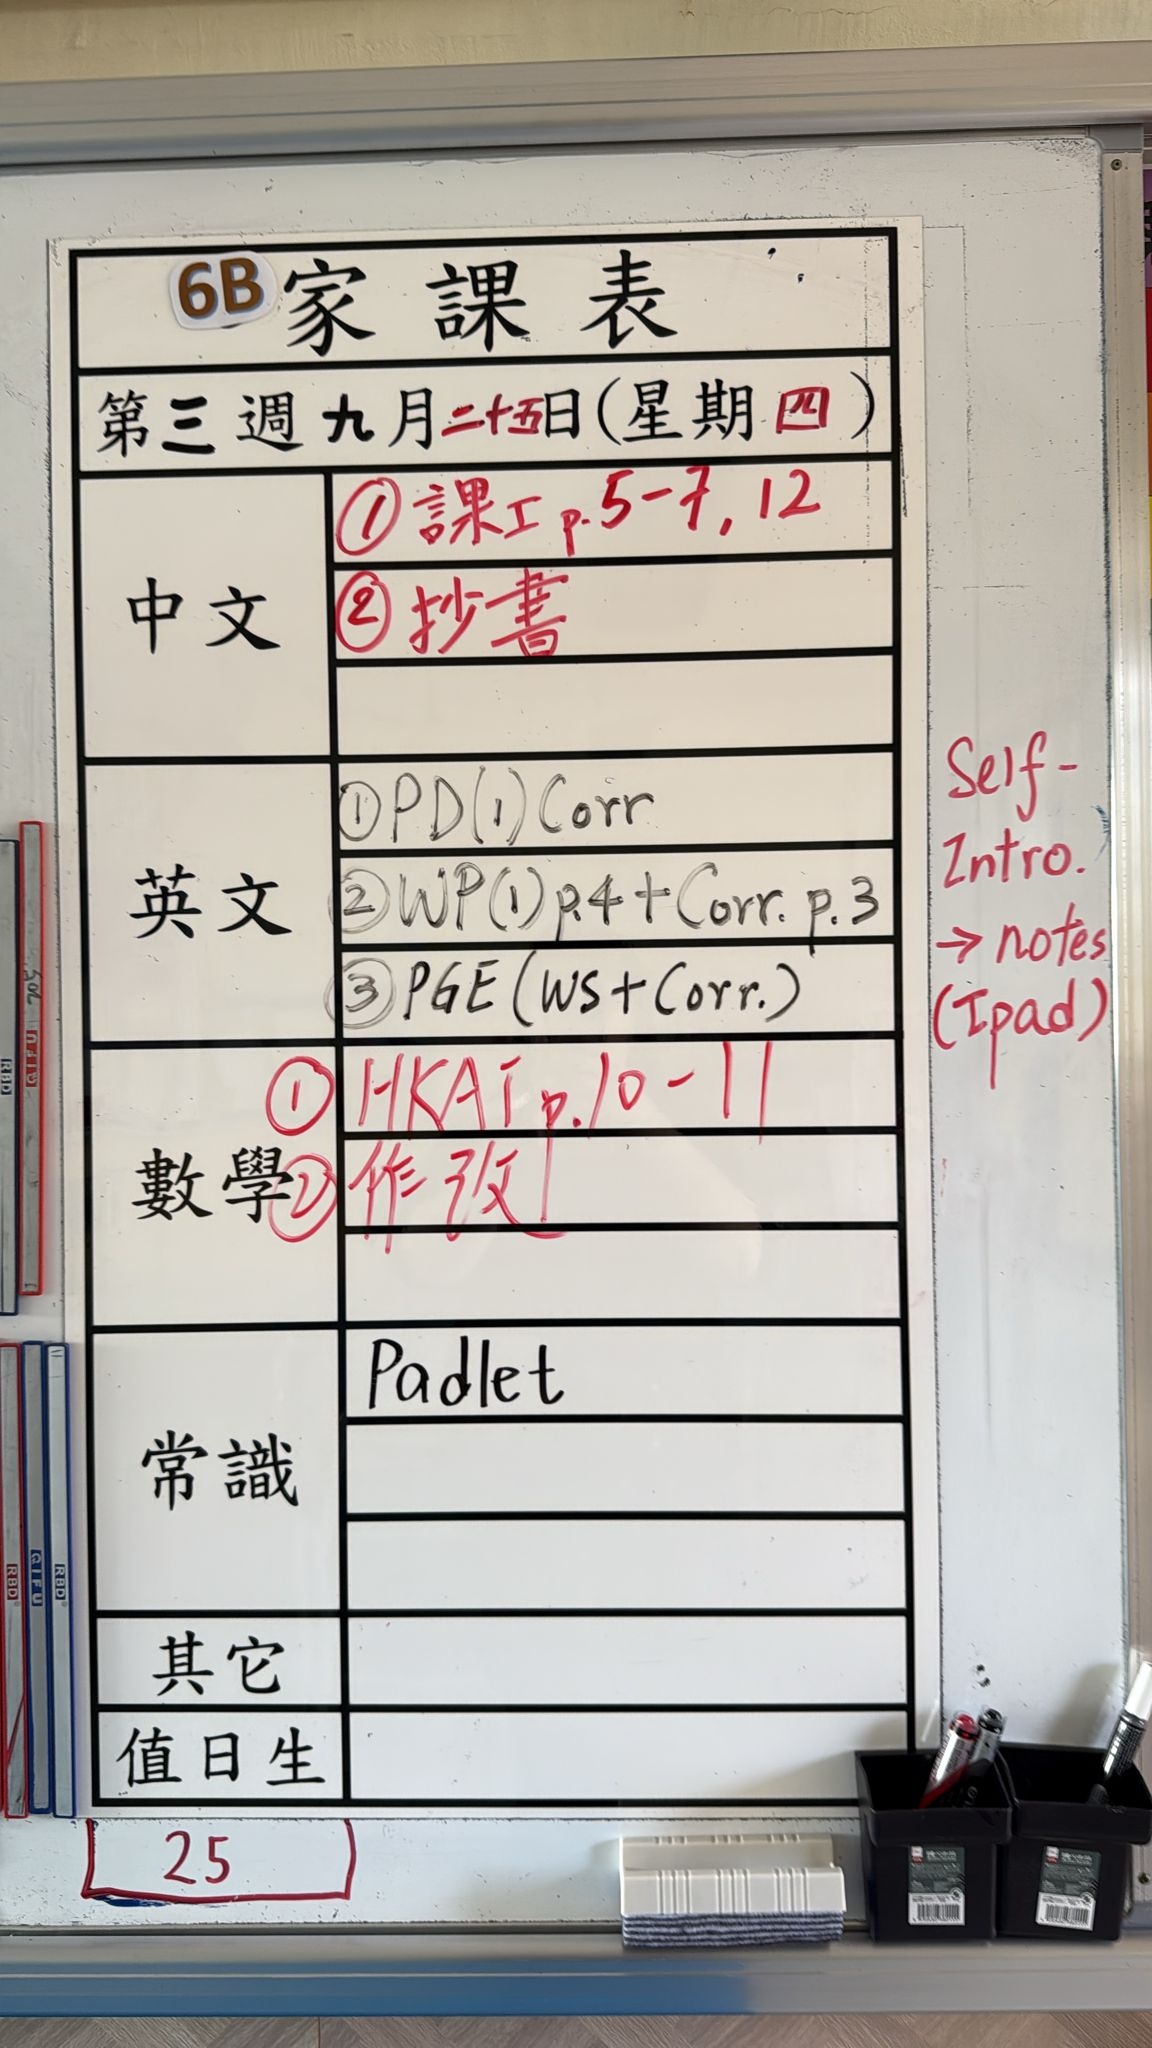 6B 家課表
第三週九月二十五日(星期四)
中文
① 課工 p.5-7, 12
② 抄書
英文
① PD(1) Corr
② WP(1) p.4 + Corr. p.3
③ PGE (WS + Corr.)
Self-
Intro.
→ notes
(Ipad)
數學
① HKAT p.10-11
② 作改
常識
Padlet
其它
值日生
25
SOL
QIFU
RBD
RBD
QIFU
RBD